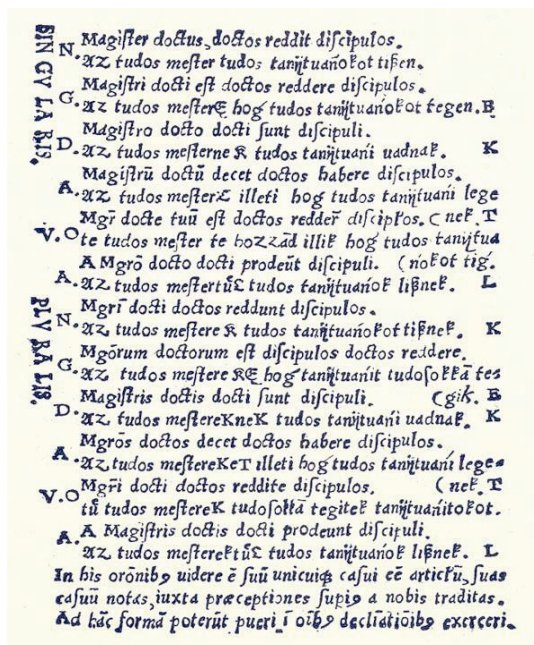 SINGULARIS.
N. Magiſter doctus, doctos reddit diſcipulos.
Az tudos meſter tudos tanijtuańokot tißen.
G. Magiſtri docti eſt doctos reddere diſcipulos.
Az tudos meſterE hog tudos tanijtuańokot tegen. E
D. Magiſtro docto docti ſunt diſcipuli.
Az tudos meſterne K tudos tanijtuańi uadnak. K
A. Magiſtrū doctū decet doctos habere diſcipulos.
Az tudos meſterT illeti hog tudos tanijtuańi lege
Mgr̄i docte tuū eſt doctos redder̄ diſcipłos. (nek. T
V.O te tudos meſter te hozzād illik hog tudos tanijtua
A Mgrō docto docti prodeūt diſcipuli. (nokot tig.
A. Az tudos meſtertűL tudos tanijtuańok lißnek. L
PLURALIS.
N. Mgri docti doctos reddunt diſcipulos.
Az tudos meſtere K tudos tanijtuańokot tißnek. K
G. Mgōrum doctorum eſt diſcipulos doctos reddere.
Az tudos meſtere KE hog tanijtuańit tudoſokkā tes
D. Magiſtris doctis docti ſunt diſcipuli. (gik. E
Az tudos meſtereKneK tudos tanijtuańi uadnak. K
Mgrōs doctos decet doctos habere diſcipulos.
A. Az tudos meſtereKeT illeti hog tudos tanijtuańi lege=
V.O Mgr̄i docti doctos reddite diſcipulos. (nek. T
tű tudos meſtereK tudoſokkā tegitek tanijtuańitokot.
A. A Magiſtris doctis docti prodeunt diſcipuli.
Az tudos meſterektűL tudos tanijtuańok lißnek. L
In his orōnibꝰ uidere ē ſuū unicuiqꝫ caſui eē artickū, ſuas
caſuū notas, iuxta præceptiones ſupiꝰ a nobis traditas.
Ad hāc formā poterūt pueri ī oībꝰ decliatiōibꝰ exerceri.